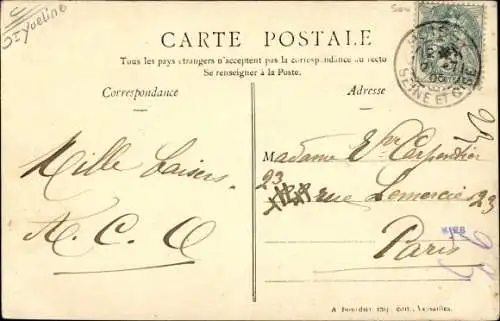 Yveline
CARTE POSTALE
Tous les pays étrangers n'acceptent pas la correspondance au recto
Se renseigner à la Poste.
Correspondance
Adresse
SEINE ET OISE
Mille baisers.
A. C. O
Madame Carpentier
23
rue Lemercier 23
Paris